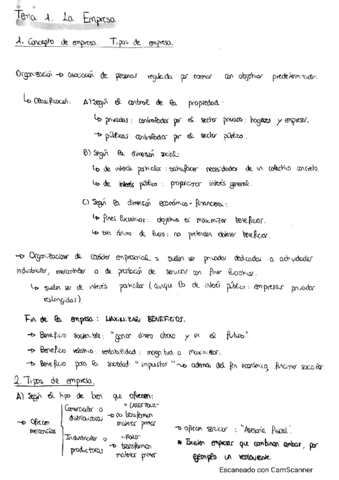 Tema 1. La Empresa
1. Concepto de empresa. Tipos de empresa.
Organización → asociación de personas regulada por normas con objetivos predeterminados.
↳ Clasificación: A) Según el control de la propiedad:
↳ privadas: controladas por el sector privado: hogares y empresas.
→ públicas controladas por el sector público.
B) Según la dimensión social:
↳ de interés particular: satisfacer necesidades de un colectivo concreto.
↳ de interés público: proporcionar interés general.
C) Según la dimensión económico - financiera:
↳ fines lucrativos: objetivo es maximizar beneficios.
↳ sin ánimo de lucro: no pretenden obtener beneficios.
→ Organizaciones de carácter empresarial: suelen ser privadas dedicadas a actividades
industriales, mercantiles o de prestación de servicios con fines lucrativos.
↳ suelen ser de interés particular (aunque tb de interés público: empresas privadas
Fin de la empresa: MAXIMIZAR BENEFICIOS.
→ Beneficio sostenible: "ganar dinero ahora y en el futuro"
→ Beneficio relativo: rentabilidad: magnitud a maximizar.
→ Beneficio para la sociedad: "impuestos" → además del fin económico, funciones sociales.
2. Tipos de empresa.
A) Según el tipo de bien que ofrecen:
→ Ofrecen mercancías
Comerciales o distribuidoras → no transforman materias primas
Industriales o productoras → transforman materias primas
→ ofrecen servicios: "Asesoría Fiscal"
* Existen empresas que combinan ambas, por
ejemplo un restaurante.
Escaneado con CamScanner